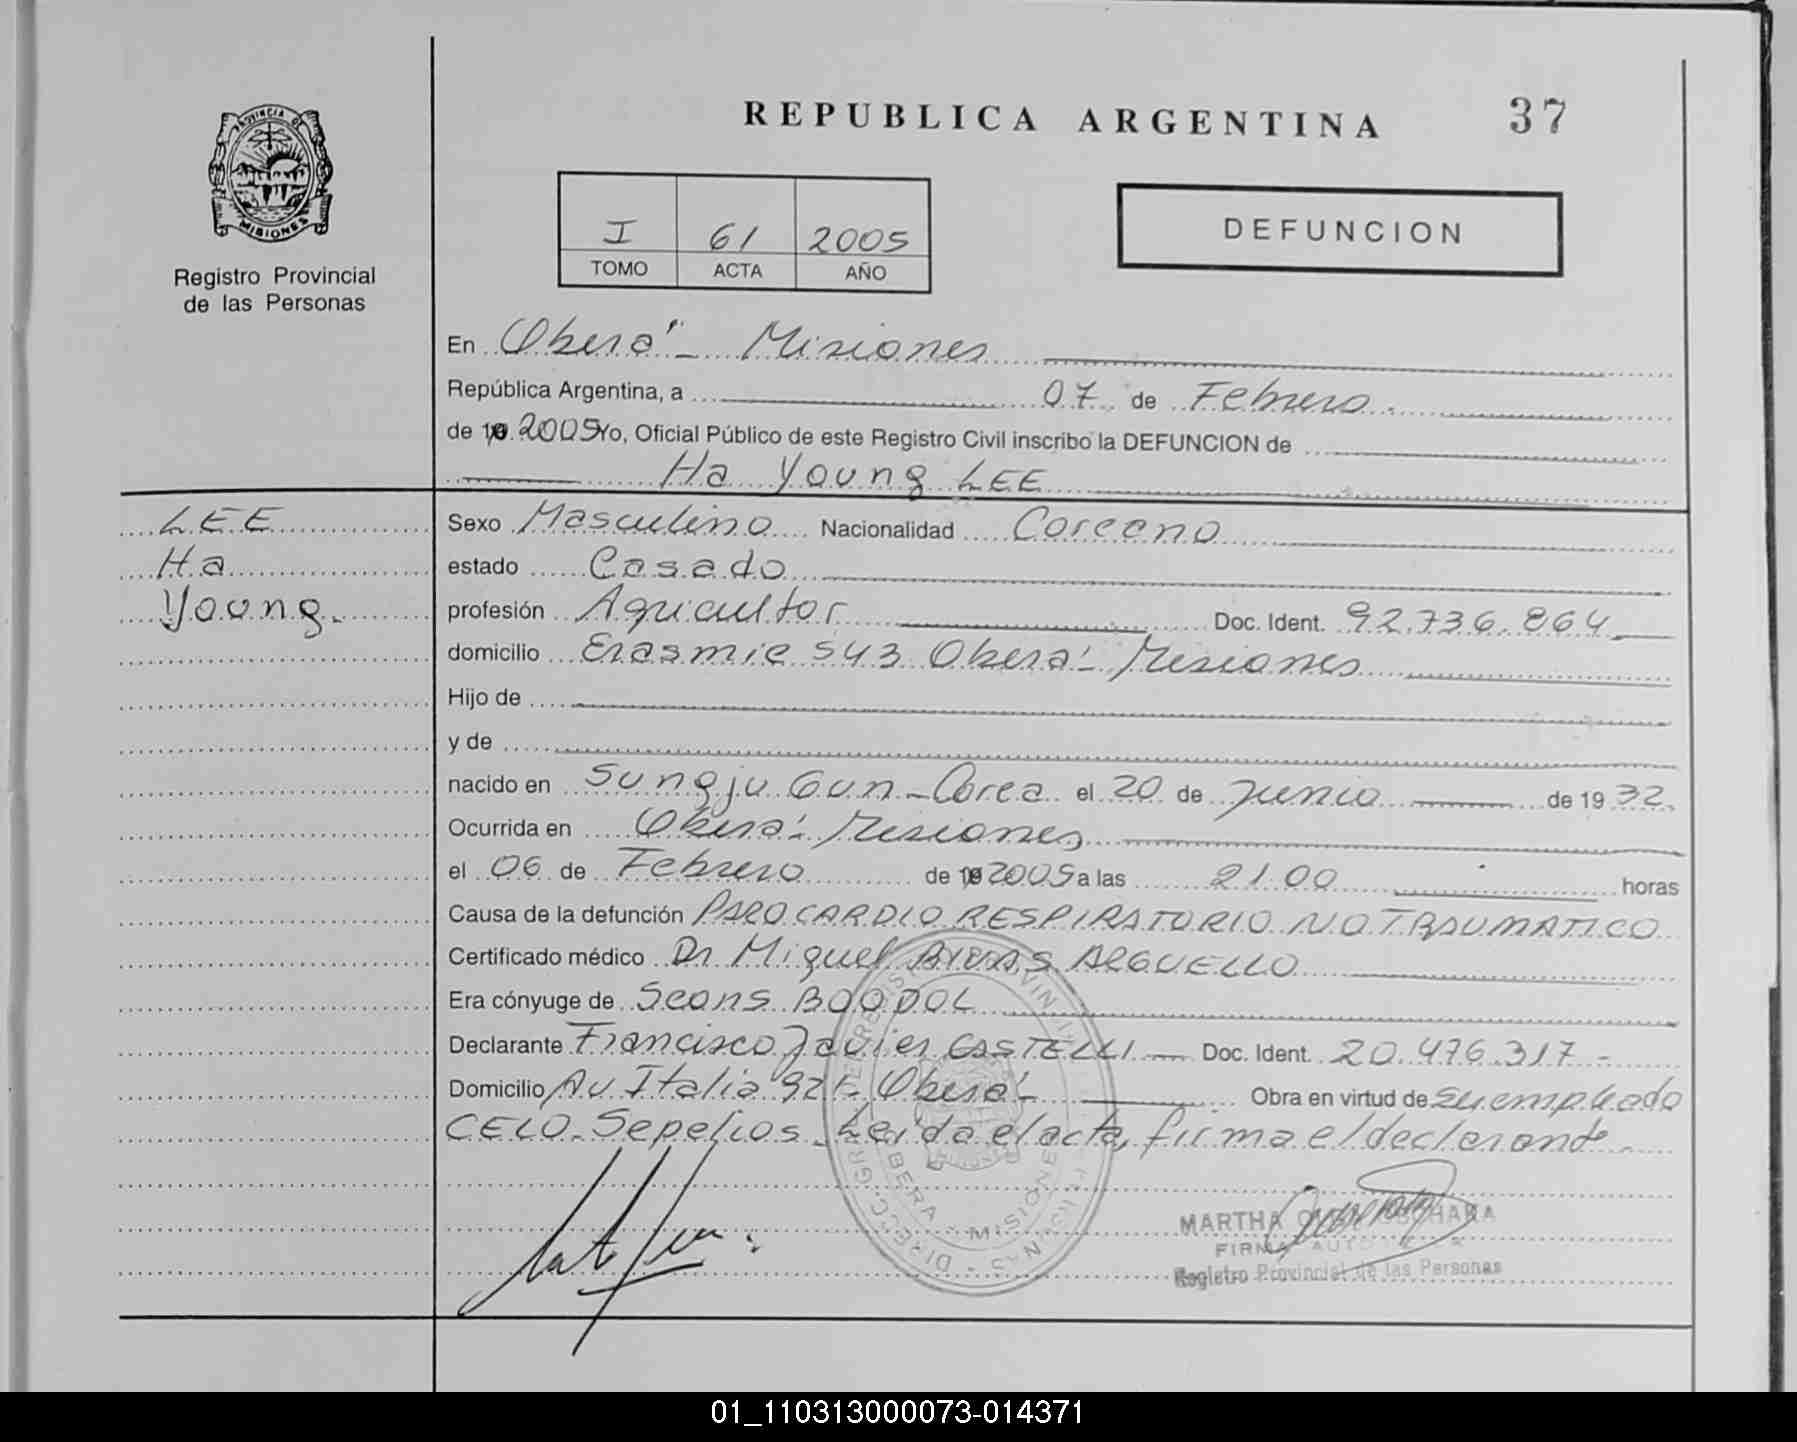 PROVINCIA DE
MISIONES
Registro Provincial
de las Personas
REPUBLICA ARGENTINA 37
I 61 2005
TOMO ACTA AÑO
DEFUNCION
En Oberá - Misiones
República Argentina, a 07 de Febrero.
de 19 2005 Yo, Oficial Público de este Registro Civil inscribo la DEFUNCION de
Ha Young LEE
LEE
Ha
Young.
Sexo Masculino Nacionalidad Coreano
estado Casado
profesión Agricultor Doc. Ident. 92.736.864
domicilio Erasmie 543 Oberá - Misiones
Hijo de
y de
nacido en Sungju Gun - Corea el 20 de Junio de 1932
Ocurrida en Oberá - Misiones
el 06 de Febrero de 19 2005 a las 21.00 horas
Causa de la defunción PARO CARDIO RESPIRATORIO NO TRAUMATICO
Certificado médico Dr Miguel ARGUELLO
Era cónyuge de BOODOL
Declarante Francisco Javier CASTELLI - Doc. Ident. 20.476.317 -
Domicilio Av. Italia Oberá - Obra en virtud de su empleado
CELO - Sepelios - Leída el acta, firma el declarante.
OBERA - MISIONES
MARTHA
FIRMA
Registro Provincial de las Personas
01_110313000073-014371